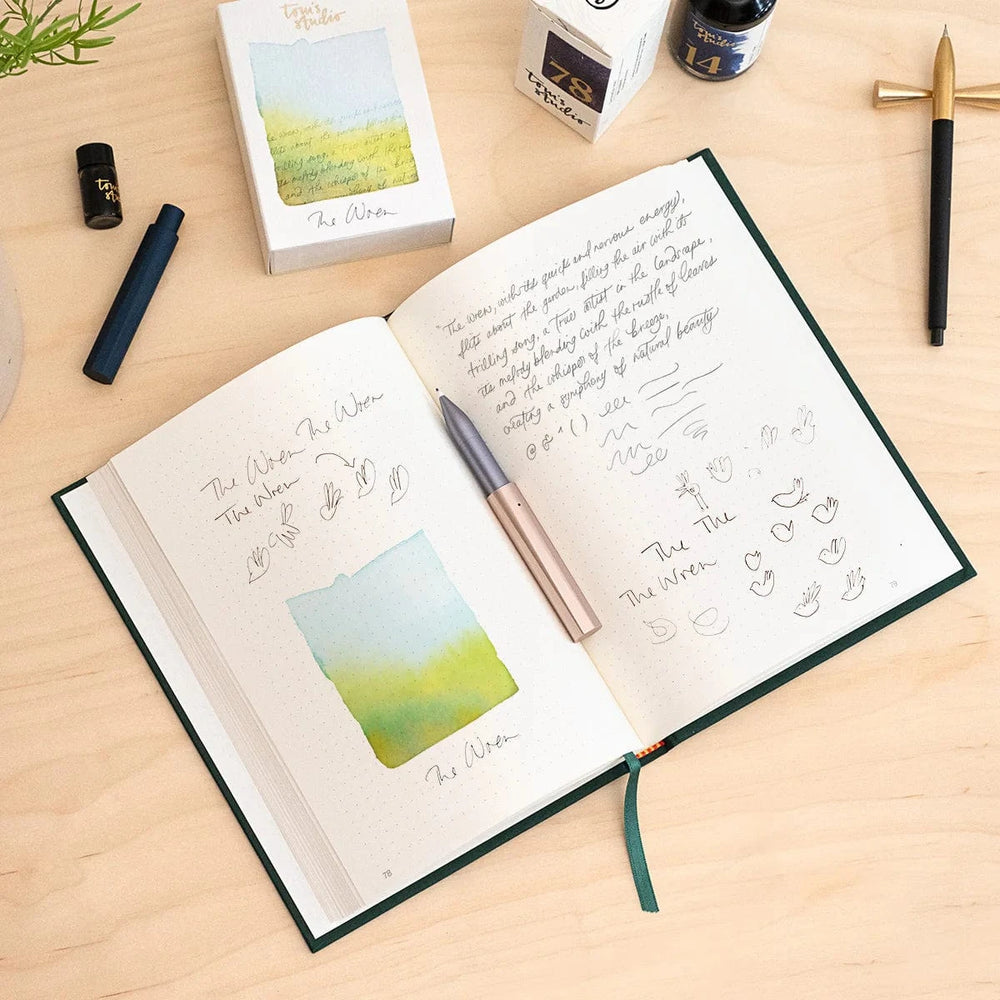 tom's
studio
The Wren
78
tom's
studio
tom's
studio
14
tom's
st
The Wren The Wren
The Wren
The Wren
78
"The wren, with its quick and nervous energy,
flits about the garden, filling the air with its
trilling song, a true artist in the landscape,
its melody blending with the rustle of leaves
and the whisper of the breeze,
creating a symphony of natural beauty
@ & ^ ( )
The The
The Wren
79